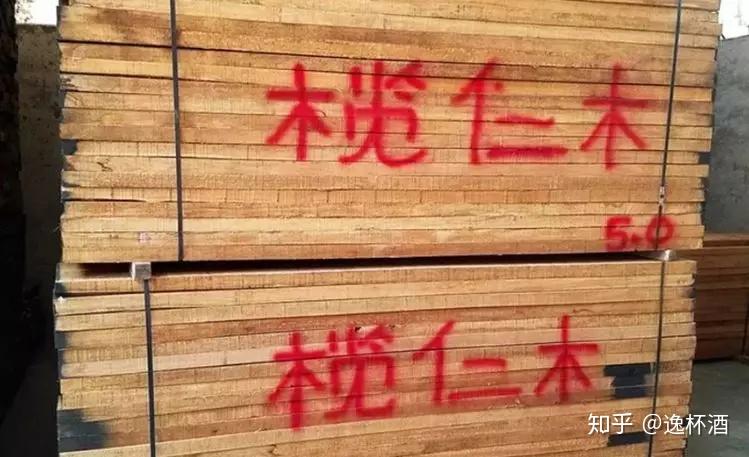 榄仁木
5.0
榄仁木
知乎 @逸杯酒